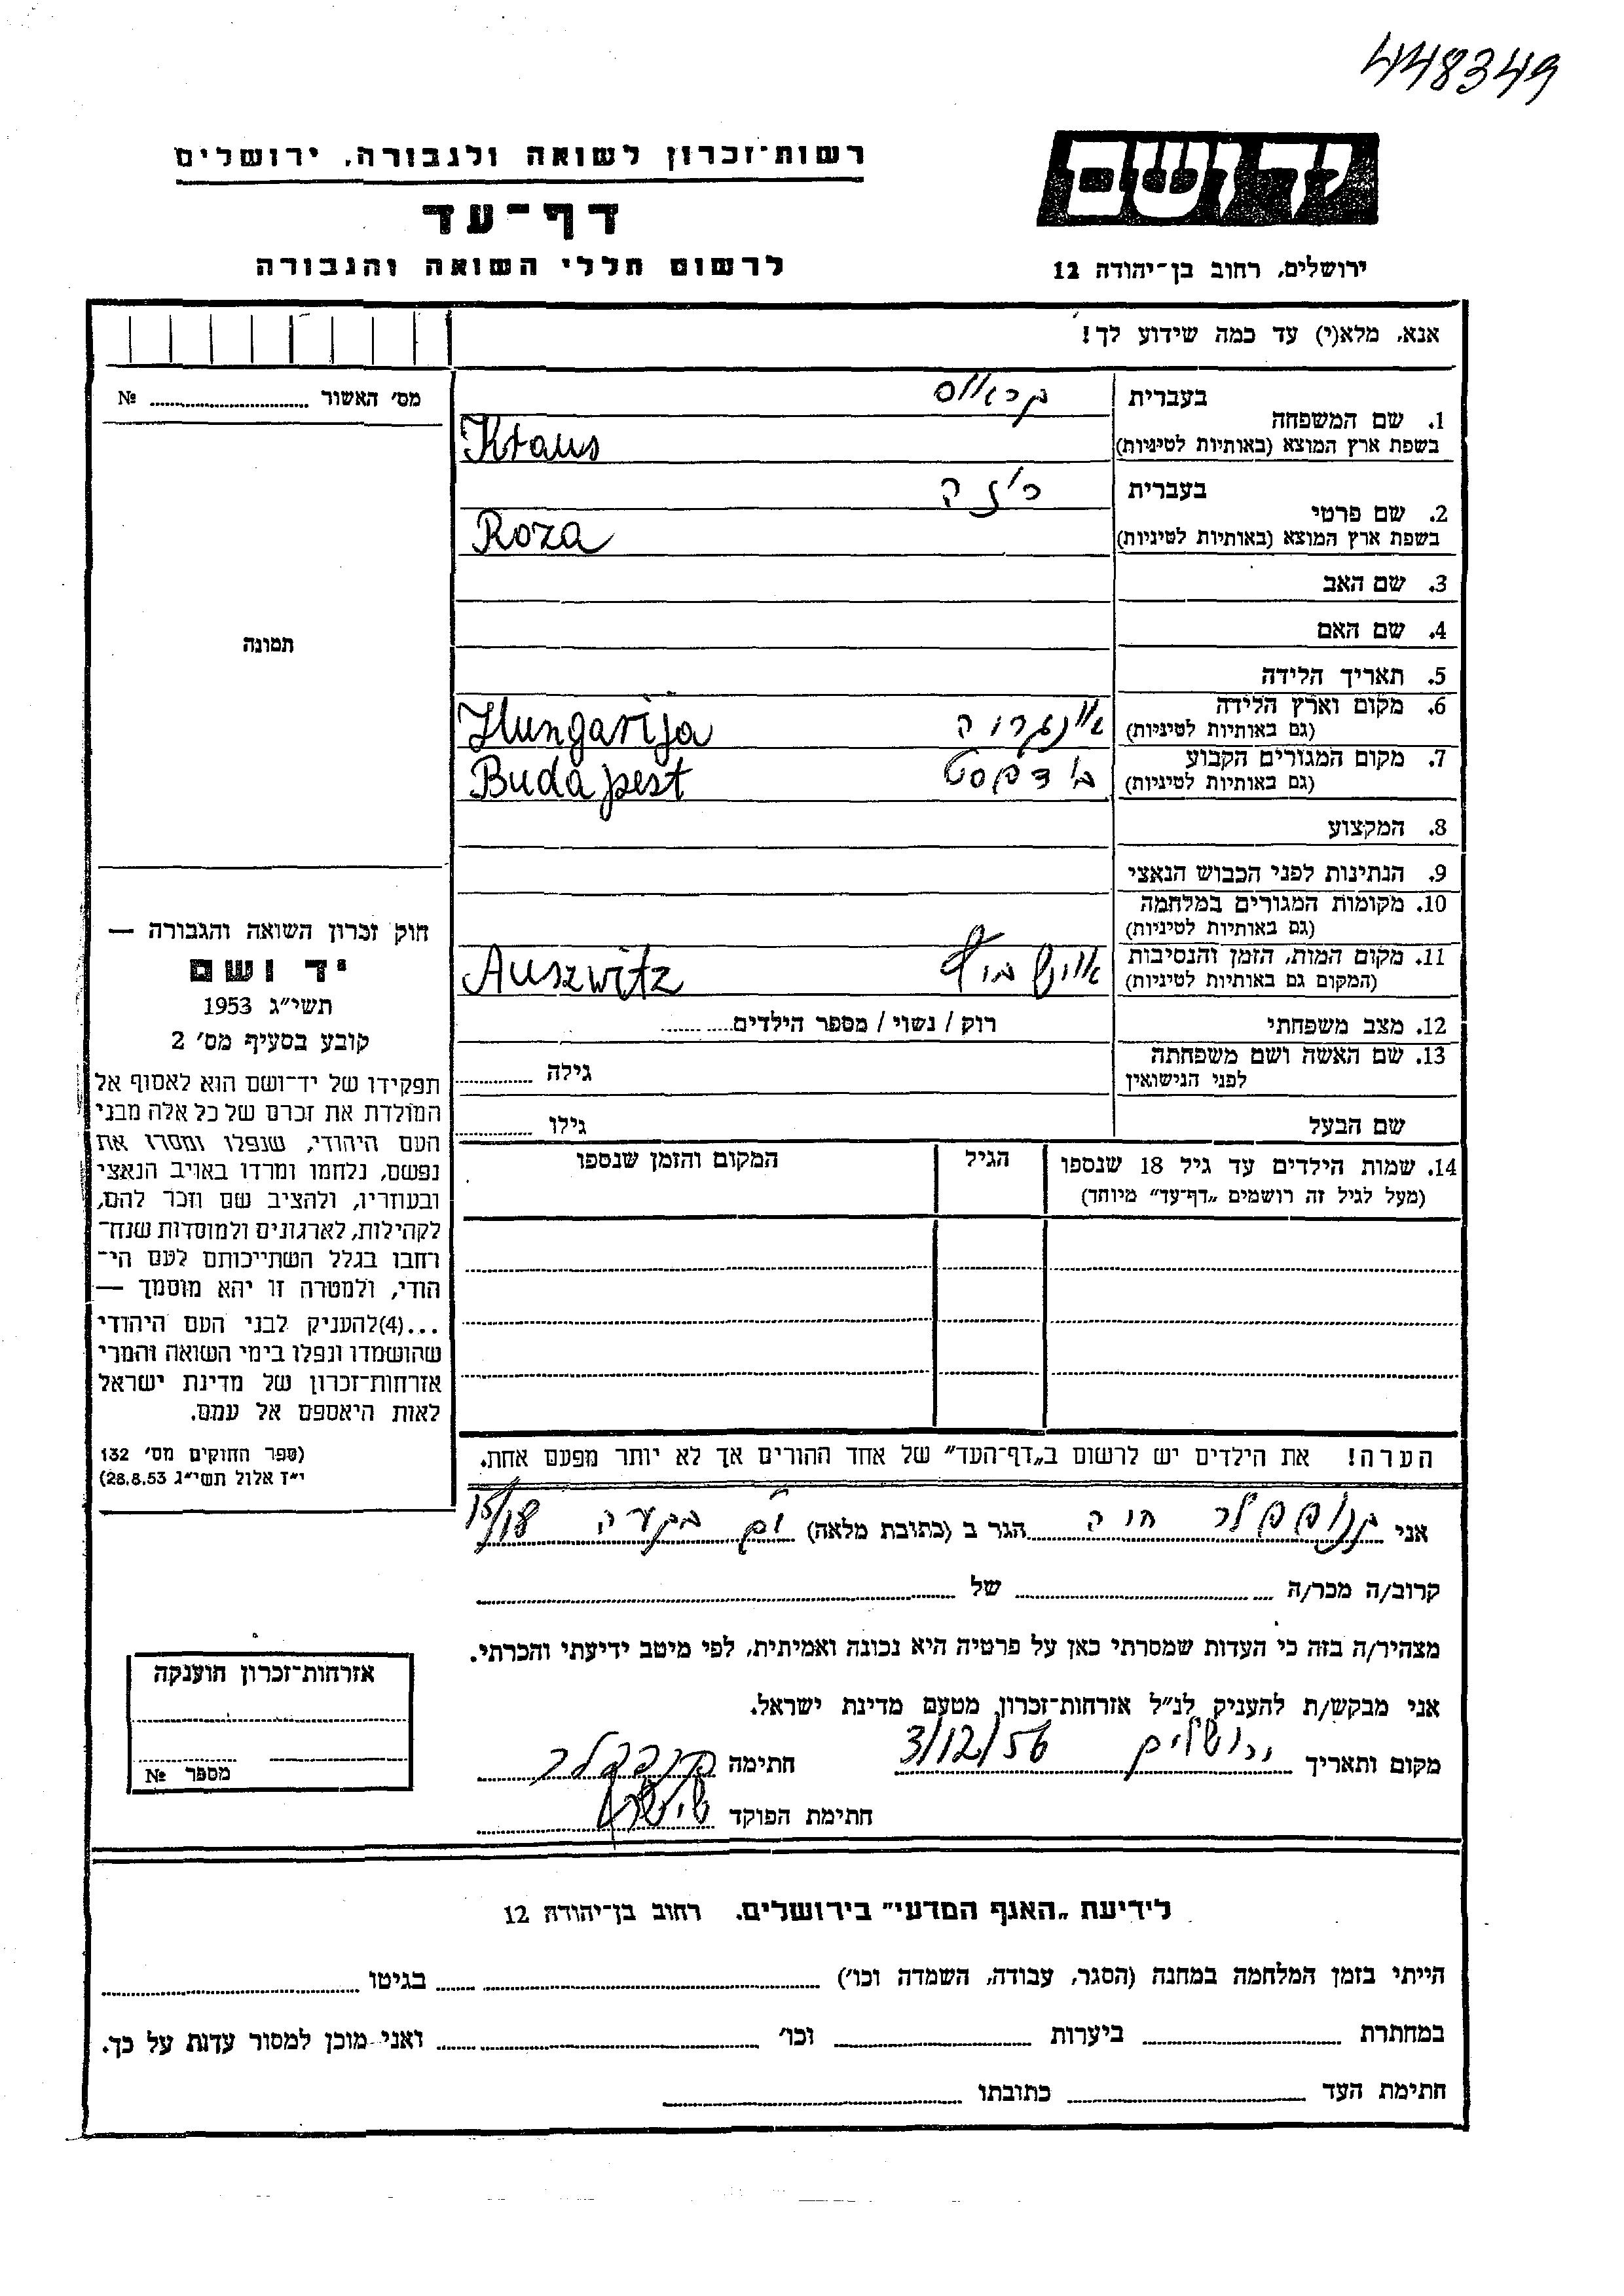 448349
יד ושם
רשות-זכרון לשואה ולגבורה, ירושלים
דף-עד
לרשום חללי השואה והגבורה
ירושלים, רחוב בן-יהודה 12
אנא, מלא(י) עד כמה שידוע לך!
מס׳ האשור № 
1. שם המשפחה
בעברית קראוס
בשפת ארץ המוצא (באותיות לטיניות) Kraus
2. שם פרטי
בעברית רוזה
בשפת ארץ המוצא (באותיות לטיניות) Roza
3. שם האב
4. שם האם
5. תאריך הלידה
6. מקום וארץ הלידה
(גם באותיות לטיניות) Hungarija
7. מקום המגורים הקבוע
(גם באותיות לטיניות) בודפסט Budapest
8. המקצוע
9. הנתינות לפני הכבוש הנאצי
10. מקומות המגורים במלחמה
(גם באותיות לטיניות)
11. מקום המות, הזמן והנסיבות
(המקום גם באותיות לטיניות) Auszwitz
12. מצב משפחתי רוק / נשוי / מספר הילדים
13. שם האשה ושם משפחתה
לפני הנישואין גילה
שם הבעל גילו
14. שמות הילדים עד גיל 18 שנספו הגיל המקום והזמן שנספו
(מעל לגיל זה רושמים „דף-עד״ מיוחד)
הערה! את הילדים יש לרשום ב„דף-העד״ של אחד ההורים אך לא יותר מפעם אחת.
תמונה
חוק זכרון השואה והגבורה —
יד ושם
תשי״ג 1953
קובע בסעיף מס׳ 2
תפקידו של יד-ושם הוא לאסוף אל
המולדת את זכרם של כל אלה מבני
העם היהודי, שנפלו ומסרו את
נפשם, נלחמו ומרדו באויב הנאצי
ובעוזריו, ולהציב שם וזכר להם,
לקהילות, לארגונים ולמוסדות שנח-
רבו בגלל השתייכותם לעם הי-
הודי, ולמטרה זו יהא מוסמך —
...(4)להעניק לבני העם היהודי
שהושמדו ונפלו בימי השואה והמרי
אזרחות-זכרון של מדינת ישראל
לאות היאספם אל עמם.
(ספר החוקים מס׳ 132
י״ז אלול תשי״ג 28.8.53)
אני חוה הגר ב (כתובת מלאה) בקעה
קרוב/ה מכר/ה של
מצהיר/ה בזה כי העדות שמסרתי כאן על פרטיה היא נכונה ואמיתית, לפי מיטב ידיעתי והכרתי.
אני מבקש/ת להעניק לנ״ל אזרחות-זכרון מטעם מדינת ישראל.
מקום ותאריך ירושלים 3/12/56 חתימה
חתימת הפוקד
אזרחות-זכרון הוענקה
מספר №
לידיעת „האגף המדעי״ בירושלים. רחוב בן-יהודה 12
הייתי בזמן המלחמה במחנה (הסגר, עבודה, השמדה וכו׳) בגיטו
במחתרת ביערות וכו׳ ואני מוכן למסור עדות על כך.
חתימת העד כתובתו